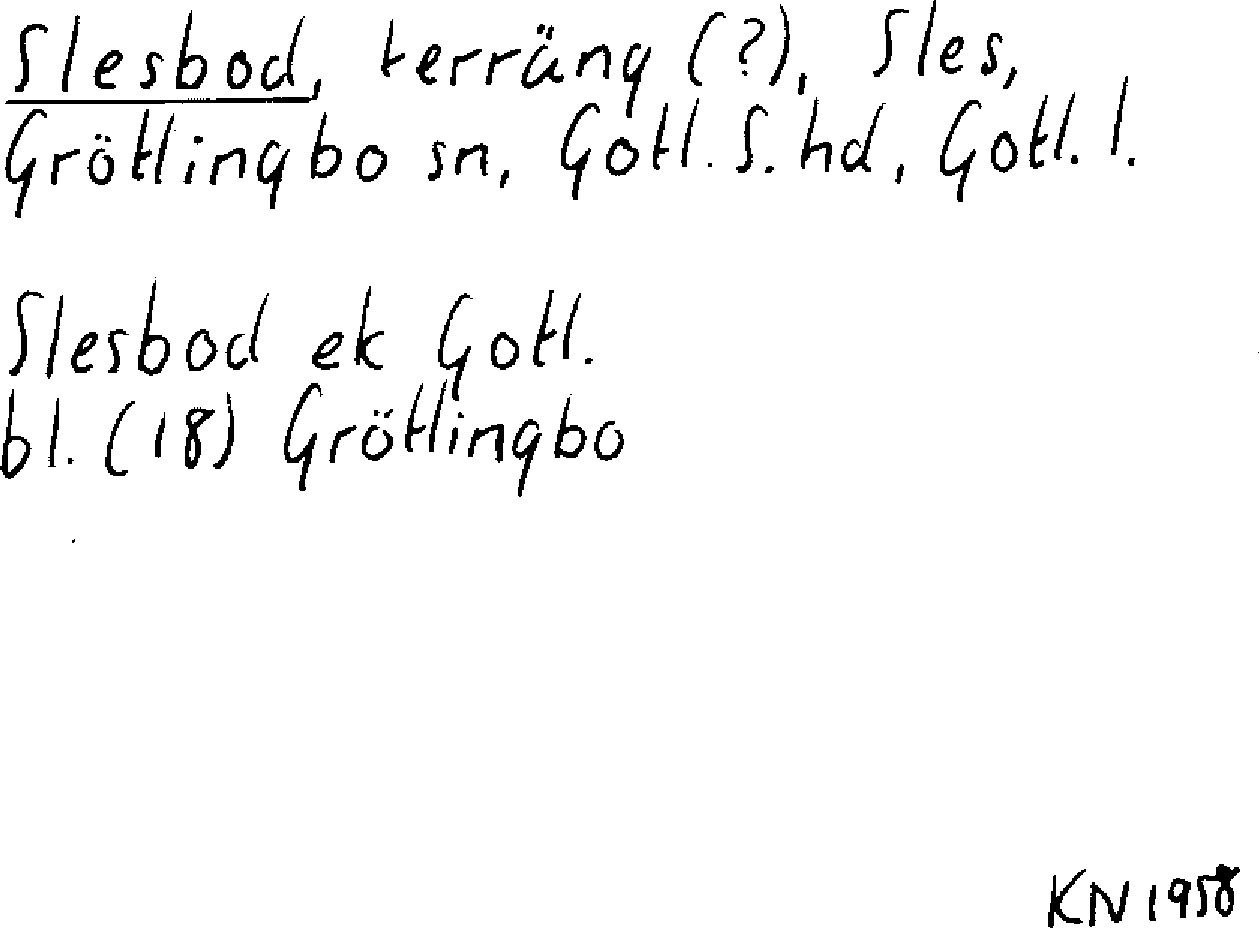 Slesbod, terräng (?), Sles,
Grötlingbo sn, Gotl. S. hd, Gotl. l.
Slesbod ek Gotl.
bl. (18) Grötlingbo
KN 1958